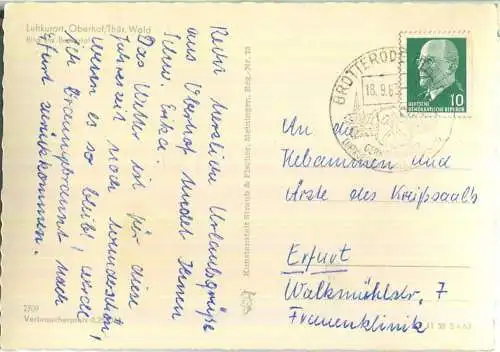 Luftkurort Oberhof/Thür. Wald
Recht herzliche Urlaubsgrüße
aus Oberhof sendet Ihnen
Schw. Erika.
Das Wetter ist für diese
Jahreszeit noch wunderschön,
wenn es so bleibt, werde
ich braungebrannt nach
Erfurt zurückkommen.
2709
Verbraucherpreis
Kunstanstalt Straub & Fischer, Meiningen, Reg. Nr. 23
BROTTERODE
18.9.63
DEUTSCHE
DEMOKRATISCHE REPUBLIK
10
An die
Hebammen und
Ärzte des Kreißsaals
Erfurt
Walkmühlstr. 7
Frauenklinik